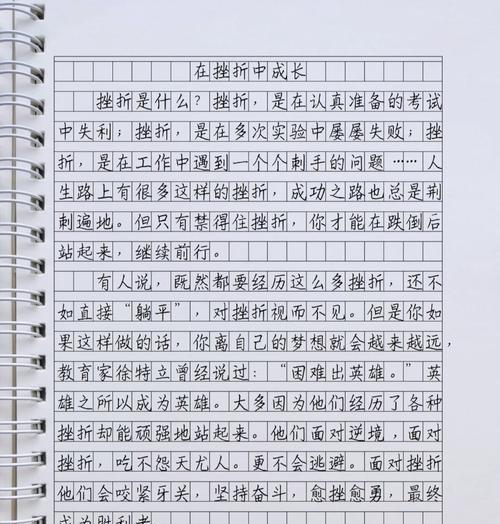 在挫折中成长
挫折是什么？挫折，是在认真准备的考试
中失利；挫折，是在多次实验中屡屡失败；挫
折，是在工作中遇到一个个刺手的问题……人
生路上有很多这样的挫折，成功之路也总是荆
刺遍地。但只有禁得住挫折，你才能在跌倒后
站起来，继续前行。
有人说，既然都要经历这么多挫折，还不
如直接“躺平”，对挫折视而不见。但是你如
果这样做的话，你离自己的梦想就会越来越远，
教育家徐特立曾经说过：“困难出英雄。”英
雄之所以成为英雄。大多因为他们经历了各种
挫折却能顽强地站起来。他们面对逆境，面对
挫折，吃不怨天尤人。更不会逃避。面对挫折
他们会咬紧牙关，坚持奋斗，愈挫愈勇，最终
成为胜利者